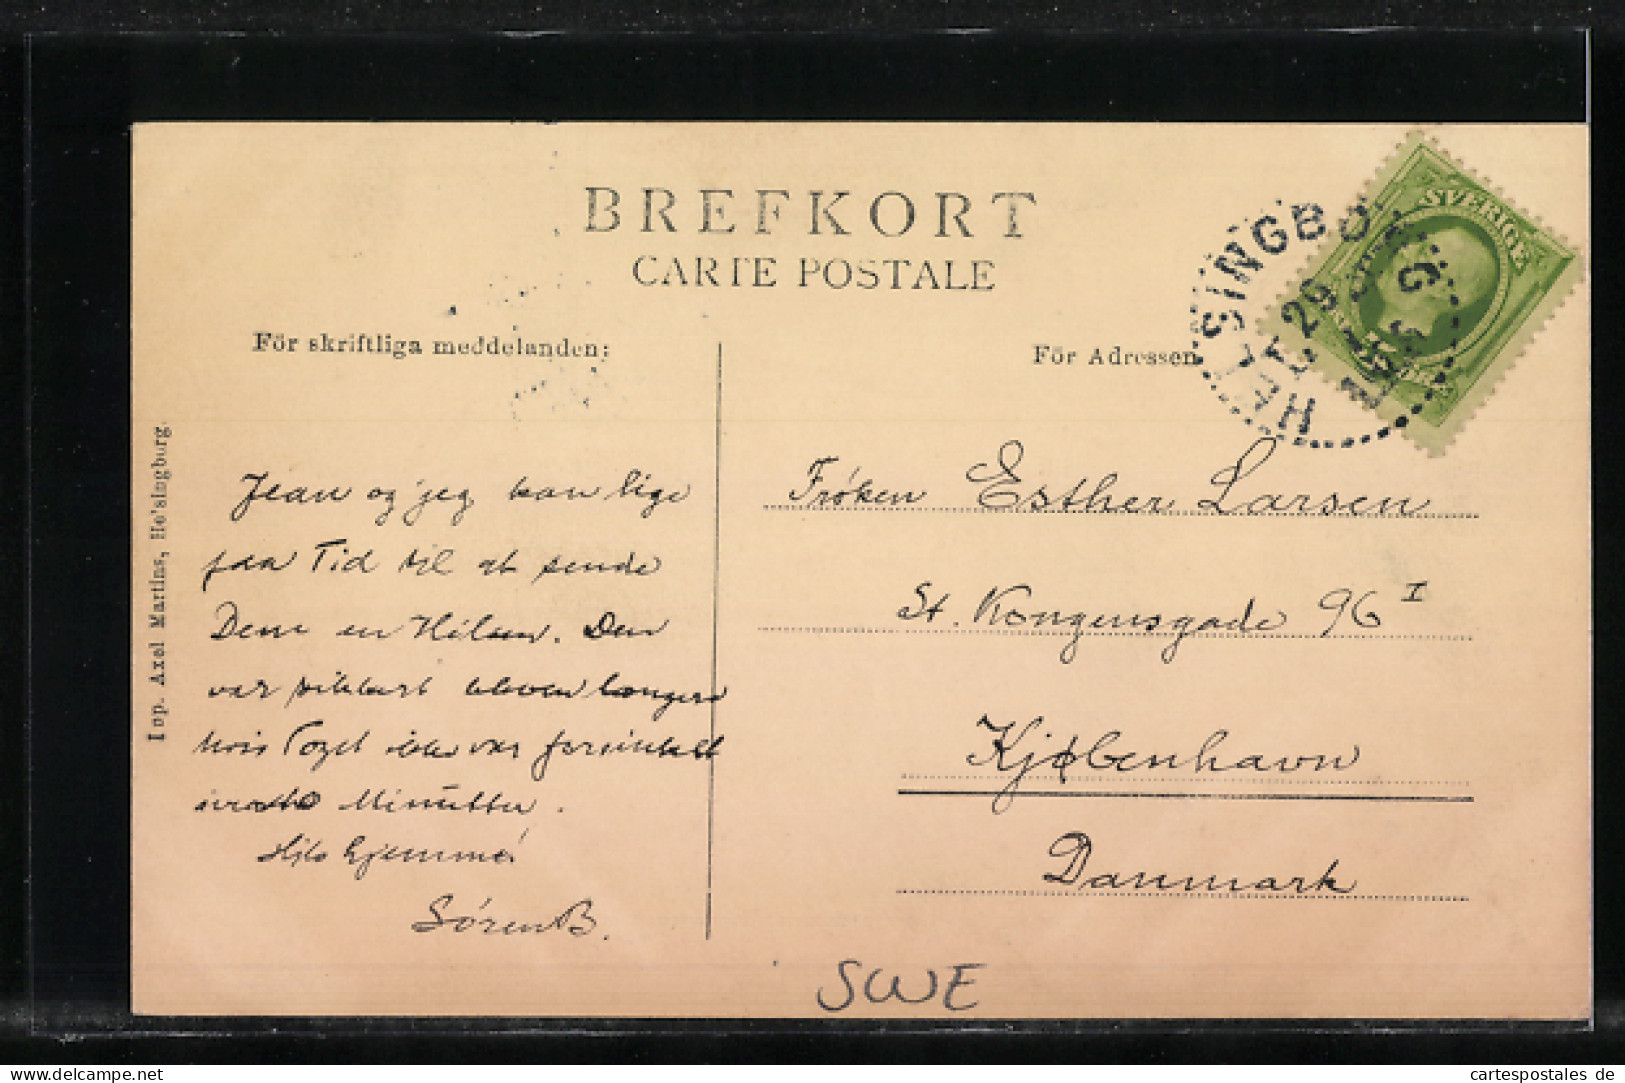 BREFKORT
CARTE POSTALE
För skriftliga meddelanden:
För Adressen
HELSINGBORG
29
SVERIGE
Imp. Axel Martins, Helsingborg.
Jean og jeg kan lige
faa Tid til at sende
Dem en Hilsen. Den
var sikkert bleven længere
hvis Toget ikke var forsinket
Minutter.
Hils hjemme!
Søren B.
Frøken Esther Larsen
St. Kongensgade 96 I
Kjøbenhavn
Danmark
SWE
cartespostales de